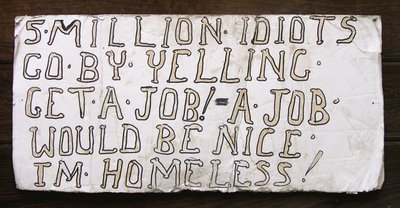 5·MILLION·IDIOTS
GO·BY·YELLING·
GET·A·JOB!-A·JOB·
WOULD·BE·NICE·
IM·HOMELESS!